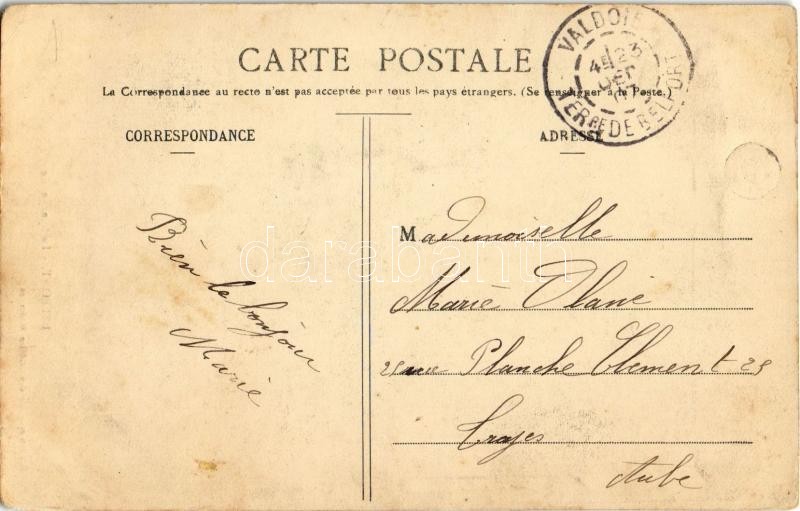 CARTE POSTALE
La Correspondance au recto n'est pas acceptée par tous les pays étrangers. (Se renseigner à la Poste.)
VALDOIE
23
TERRE DE BELFORT
CORRESPONDANCE
ADRESSE
Bien le bonjour
Marie
Mademoiselle
Marie
rue Planche Clement 25
Aube
darabanth